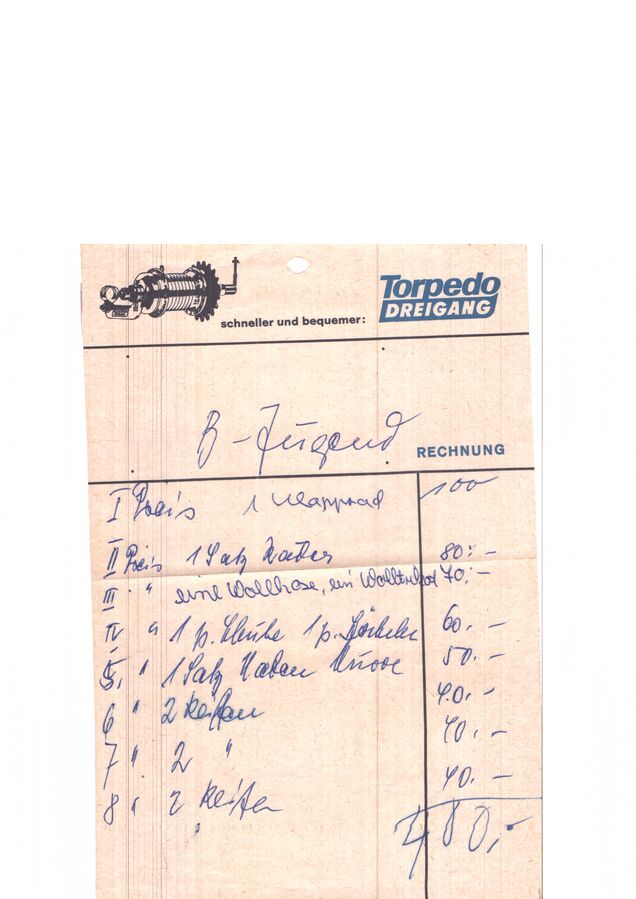 schneller und bequemer:
Torpedo
DREIGANG
B-Jugend
RECHNUNG
I Preis 1 Klapprad 100
II Preis 1 Satz Räder 80.-
III " eine Wollhose, ein Wolltrikot 70.-
IV " 1 p. Schuhe 1 p. Söckchen 60.-
5. " 1 Satz Naben 50.-
6 " 2 Reifen 40.-
7 " 2 " 40.-
8 " 2 Reifen 40.-
480,-